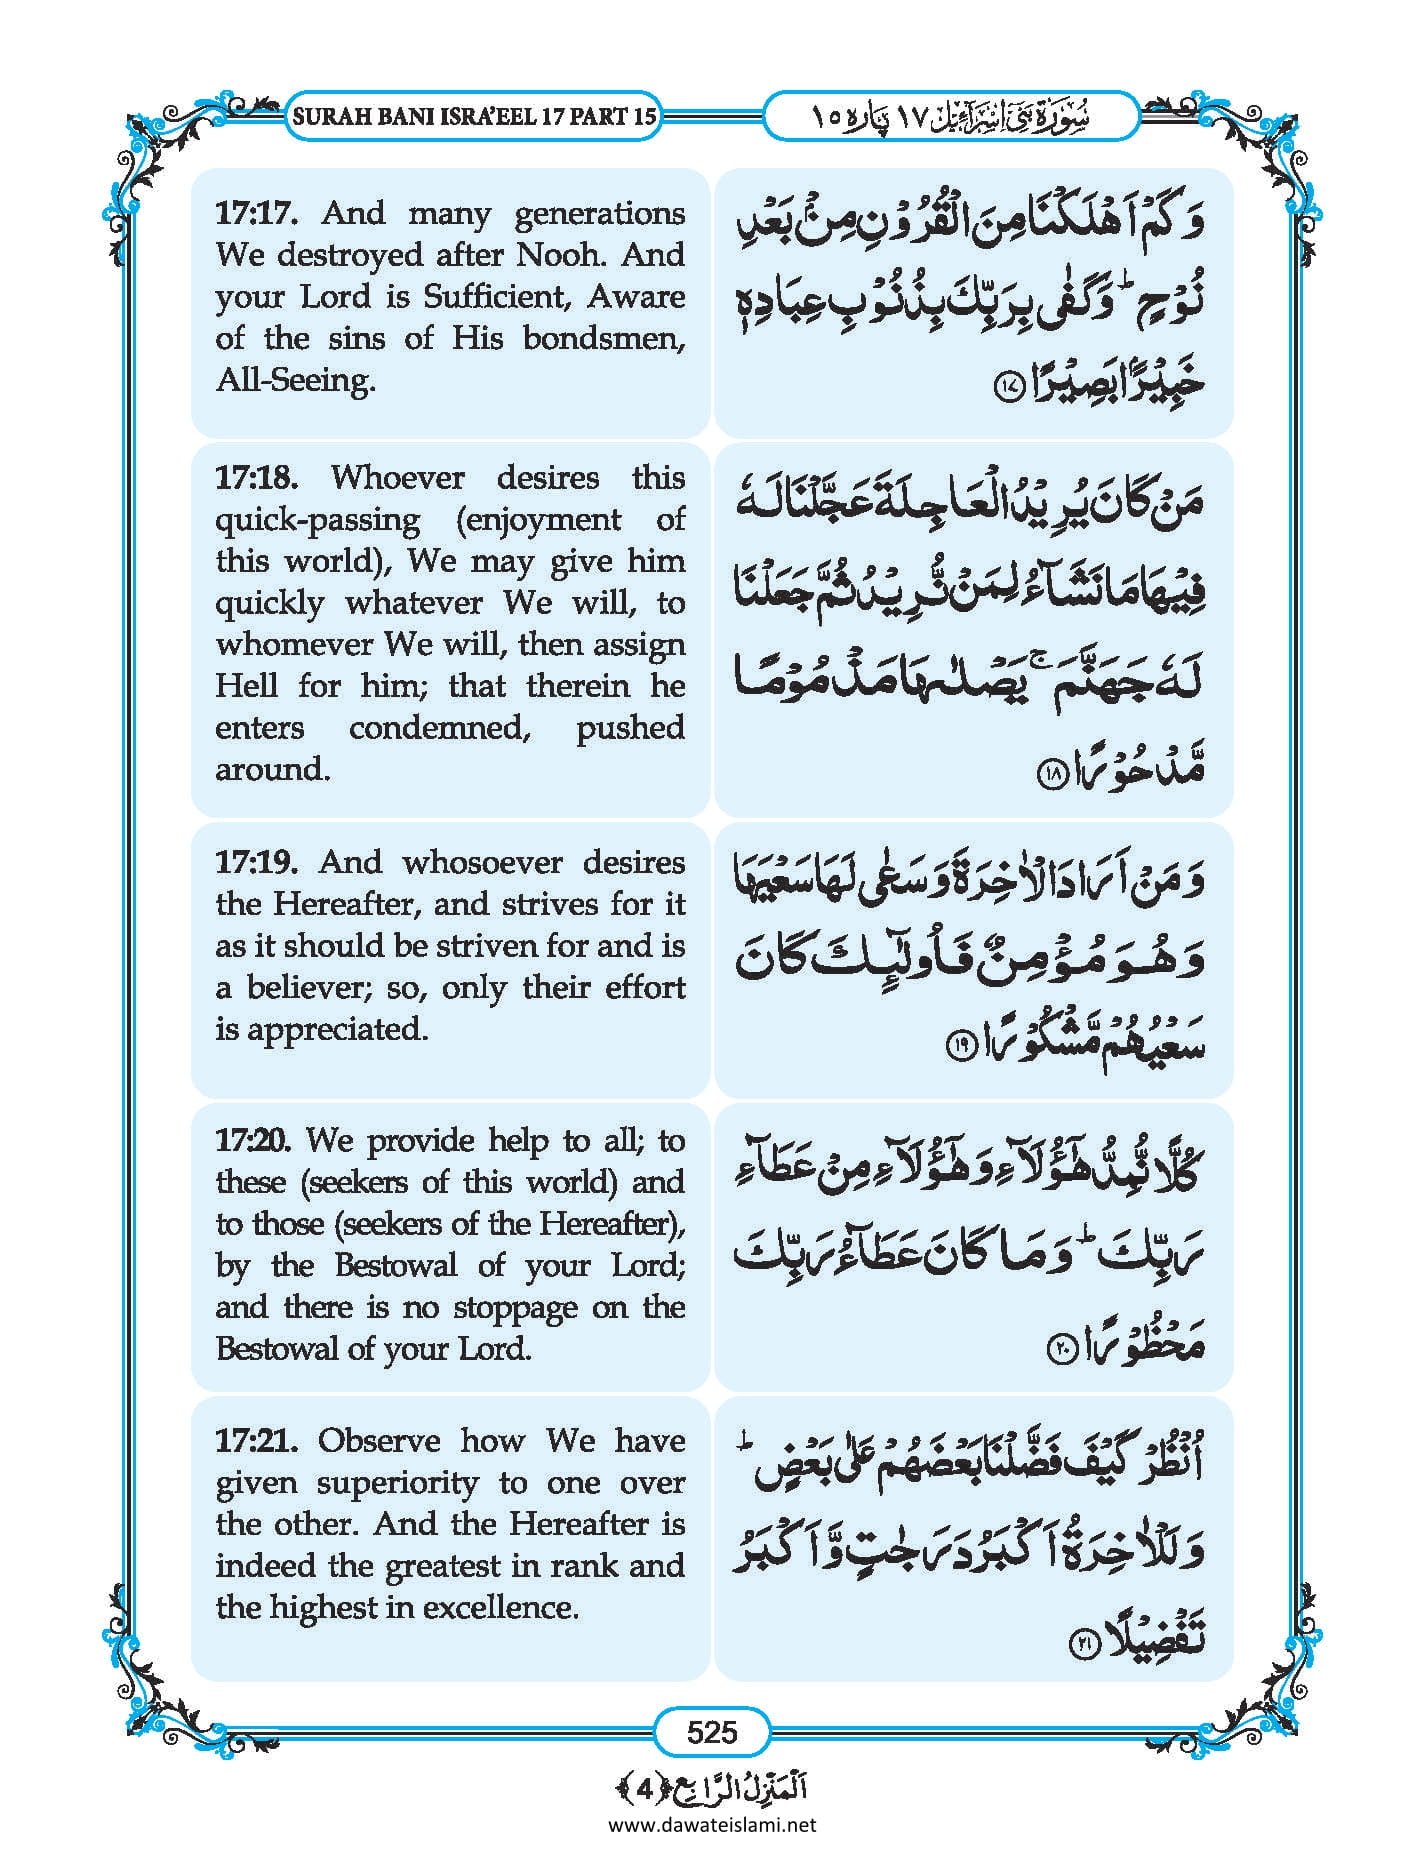 SURAH BANI ISRA'EEL 17 PART 15
سُوْرَةُ بَنِیْۤ اِسْرَآءِیْل ١٧ پاره ١٥
17:17. And many generations
We destroyed after Nooh. And
your Lord is Sufficient, Aware
of the sins of His bondsmen,
All-Seeing.
وَ كَمْ اَهْلَكْنَا مِنَ الْقُرُوْنِ مِنْۢ بَعْدِ
نُوْحٍ ؕ وَ كَفٰی بِرَبِّكَ بِذُنُوْبِ عِبَادِهٖ
خَبِیْرًۢا بَصِیْرًا ﴿۱۷﴾
17:18. Whoever desires this
quick-passing (enjoyment of
this world), We may give him
quickly whatever We will, to
whomever We will, then assign
Hell for him; that therein he
enters condemned, pushed
around.
مَنْ كَانَ یُرِیْدُ الْعَاجِلَةَ عَجَّلْنَا لَهٗ
فِیْهَا مَا نَشَآءُ لِمَنْ نُّرِیْدُ ثُمَّ جَعَلْنَا
لَهٗ جَهَنَّمَ ۚ یَصْلٰىهَا مَذْمُوْمًا
مَّدْحُوْرًا ﴿۱۸﴾
17:19. And whosoever desires
the Hereafter, and strives for it
as it should be striven for and is
a believer; so, only their effort
is appreciated.
وَ مَنْ اَرَادَ الْاٰخِرَةَ وَ سَعٰی لَهَا سَعْیَهَا
وَ هُوَ مُؤْمِنٌ فَاُولٰٓىِٕكَ كَانَ
سَعْیُهُمْ مَّشْكُوْرًا ﴿۱۹﴾
17:20. We provide help to all; to
these (seekers of this world) and
to those (seekers of the Hereafter),
by the Bestowal of your Lord;
and there is no stoppage on the
Bestowal of your Lord.
كُلًّا نُّمِدُّ هٰۤؤُلَآءِ وَ هٰۤؤُلَآءِ مِنْ عَطَآءِ
رَبِّكَ ؕ وَ مَا كَانَ عَطَآءُ رَبِّكَ
مَحْظُوْرًا ﴿۲۰﴾
17:21. Observe how We have
given superiority to one over
the other. And the Hereafter is
indeed the greatest in rank and
the highest in excellence.
اُنْظُرْ كَیْفَ فَضَّلْنَا بَعْضَهُمْ عَلٰی بَعْضٍ ؕ
وَ لَلْاٰخِرَةُ اَكْبَرُ دَرَجٰتٍ وَّ اَكْبَرُ
تَفْضِیْلًا ﴿۲۱﴾
525
اَلْمَنْزِلُ الرَّابِع ﴿4﴾
www.dawateislami.net